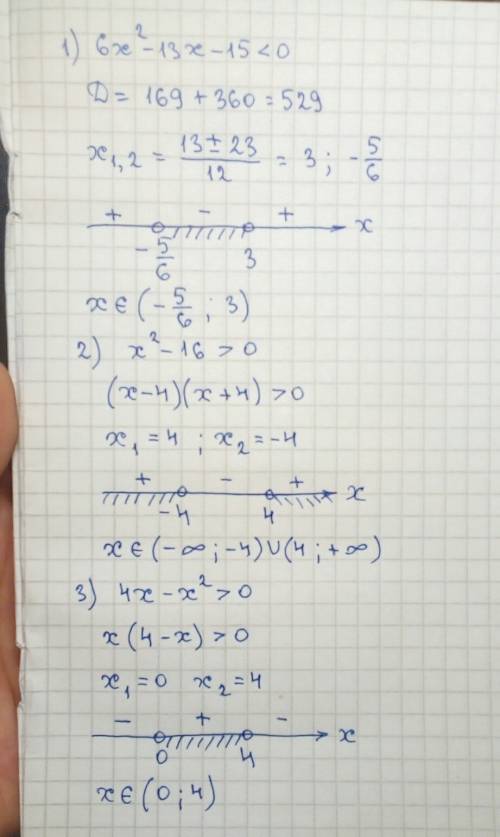 1) 6x² - 13x - 15 < 0
D = 169 + 360 = 529
x₁,₂ = (13 ± 23)/12 = 3 ; -5/6
+ - + x
-5/6 3
x ∈ (-5/6 ; 3)
2) x² - 16 > 0
(x-4)(x+4) > 0
x₁ = 4 ; x₂ = -4
+ - + x
-4 4
x ∈ (-∞ ; -4) ∪ (4 ; +∞)
3) 4x - x² > 0
x(4-x) > 0
x₁ = 0 x₂ = 4
- + - x
0 4
x ∈ (0 ; 4)